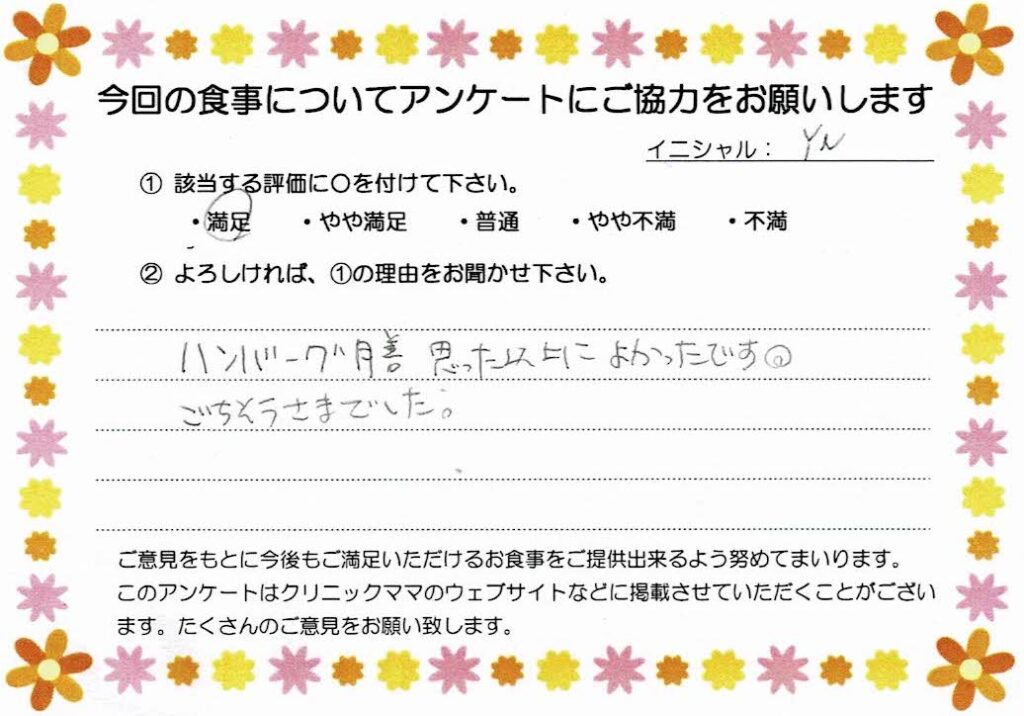 今回の食事についてアンケートにご協力をお願いします
イニシャル： YN
① 該当する評価に〇を付けて下さい。
・満足 ・やや満足 ・普通 ・やや不満 ・不満
② よろしければ、①の理由をお聞かせ下さい。
ハンバーグ膳 思った以上に よかったです
ごちそうさまでした。
ご意見をもとに今後もご満足いただけるお食事をご提供出来るよう努めてまいります。
このアンケートはクリニックママのウェブサイトなどに掲載させていただくことがござい
ます。たくさんのご意見をお願い致します。